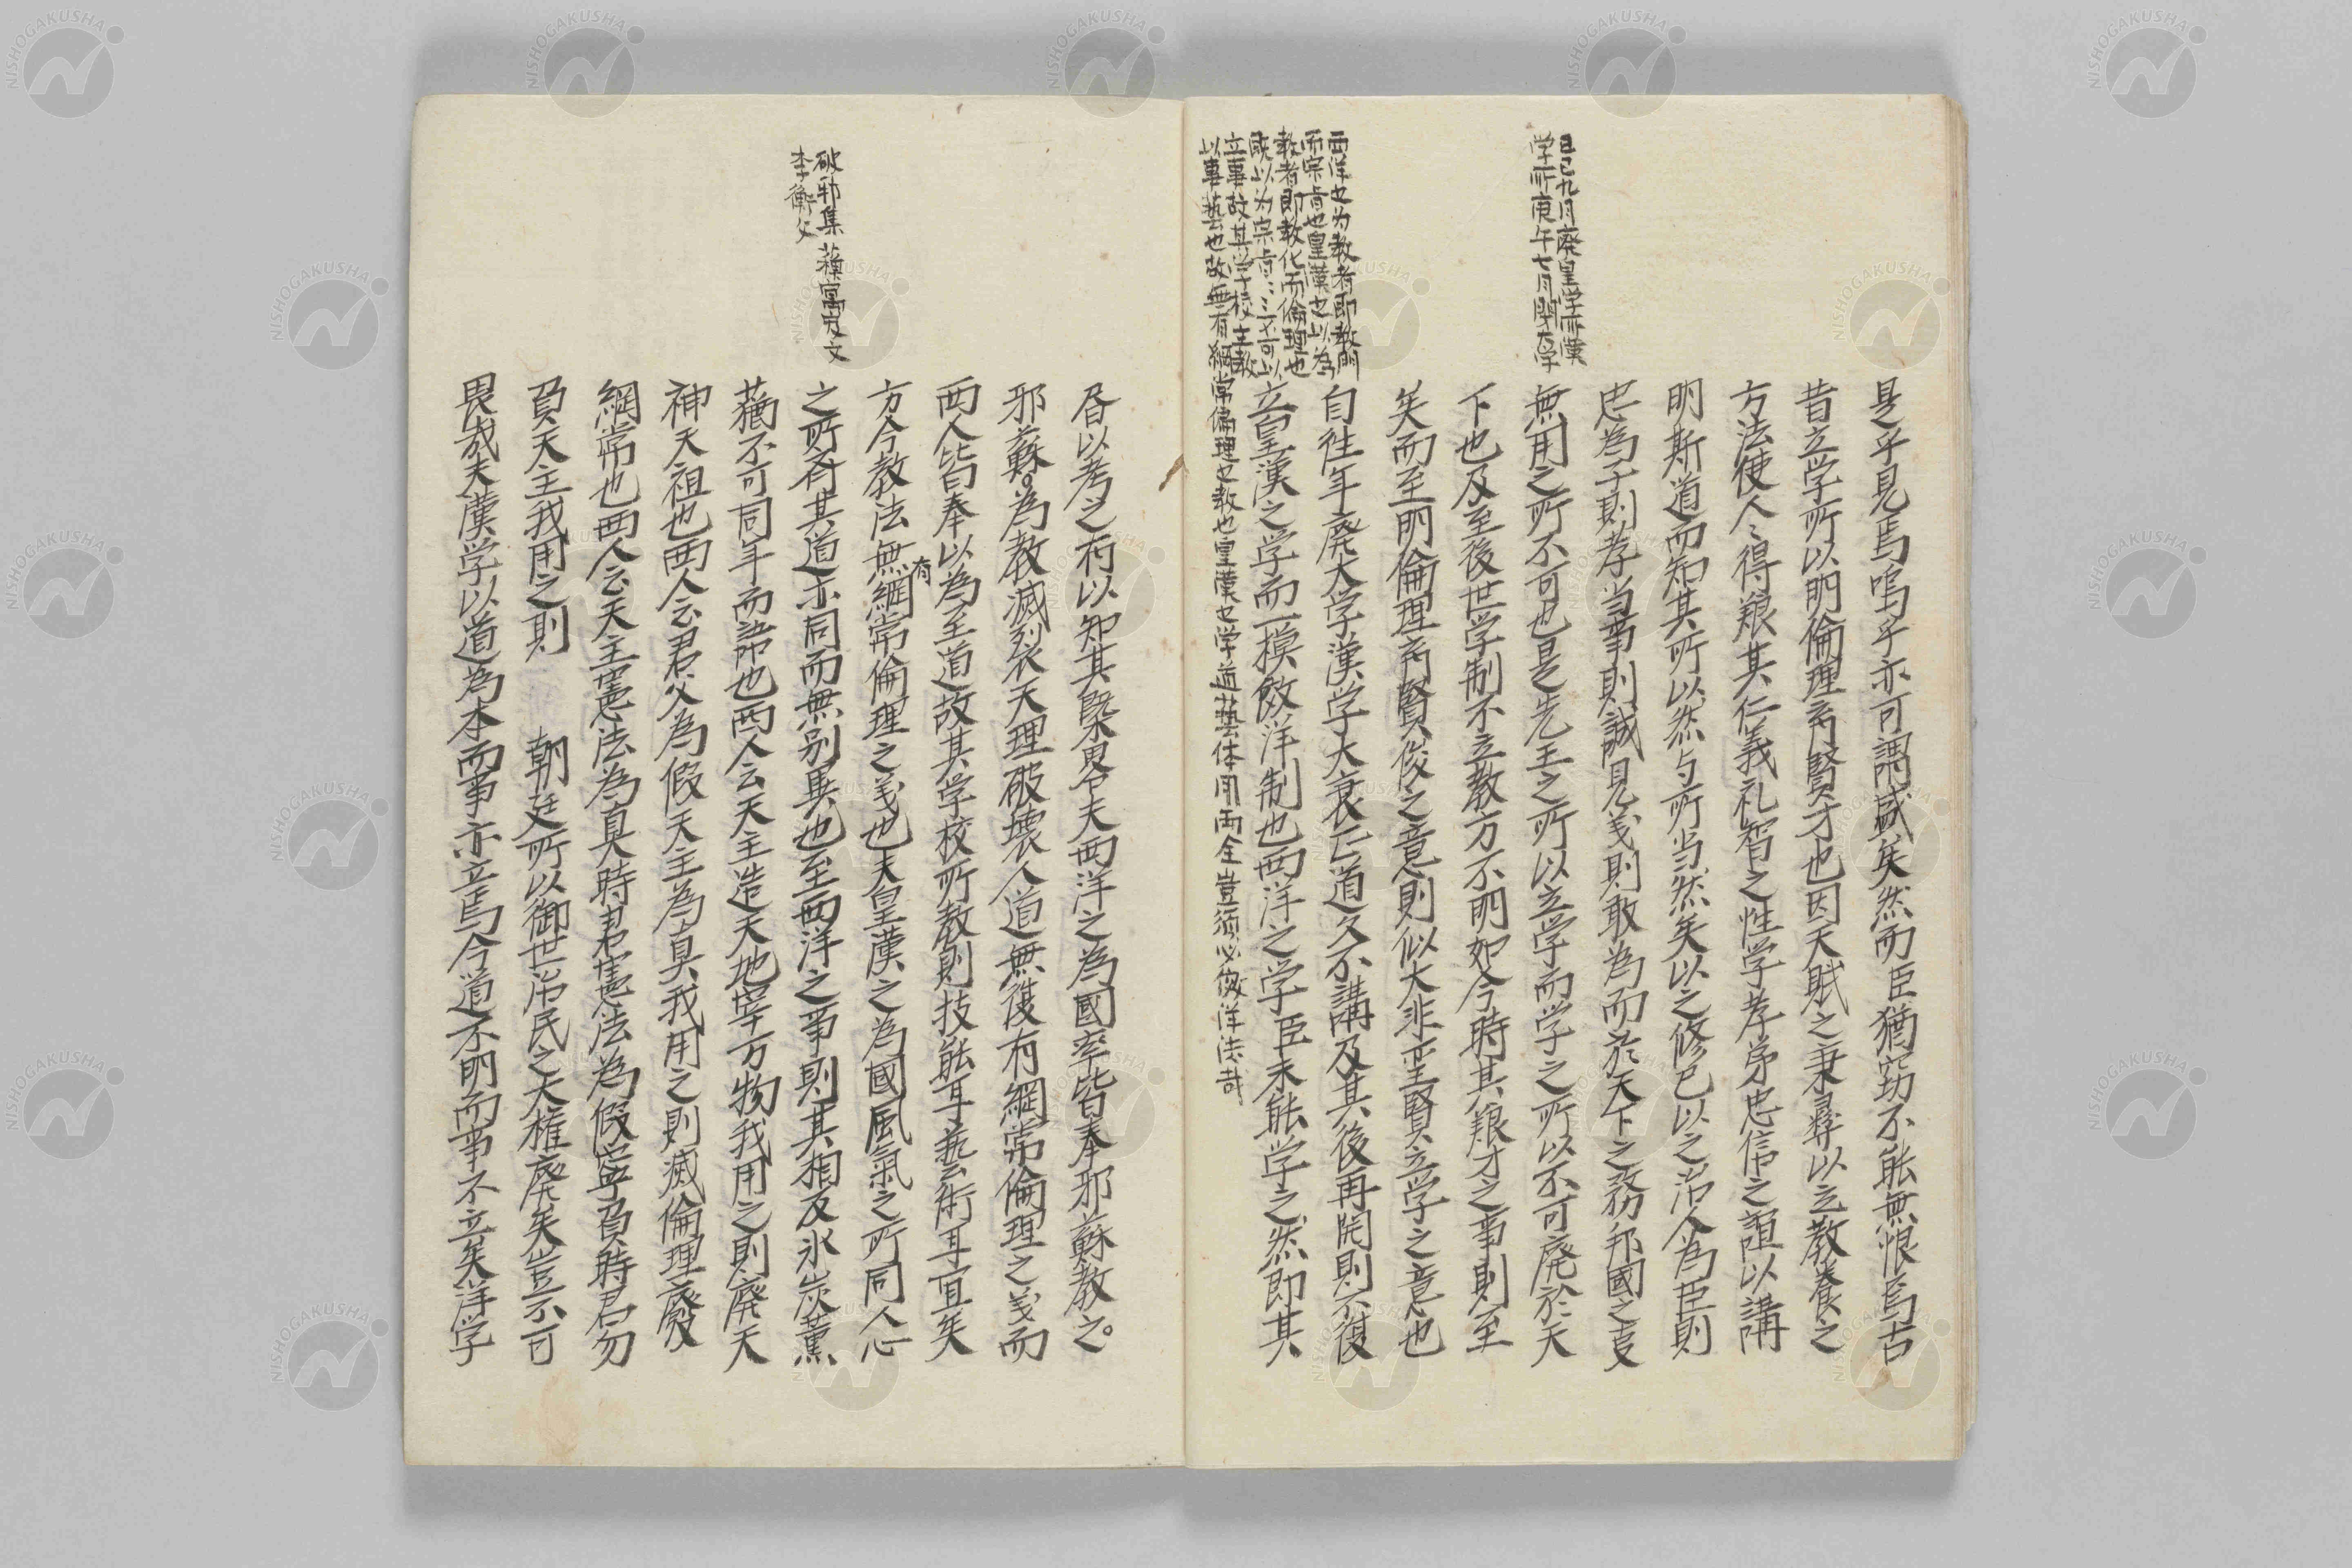 己巳九月廃皇学所漢
学所庚午七月閉大学
西洋也为教者即教門
而宗旨也皇漢也以為
教者即教化而倫理也
既以为宗旨〻〻不可以
立事故其学校主教
以事藝也故無有綱常倫理也教也皇漢也学道藝体用両全豈須必倣洋法哉
是乎見焉嗚乎亦可謂盛矣然而臣猶窃不能無恨焉古
昔立学所以明倫理育賢才也因天賦之秉彝以立教養之
方法使人〻得艱其仁義礼智之性学孝弟忠信之誼以講
明斯道而知其所以然与所当然矣以之修己以之治人為臣則
忠為子則孝当事則誠見義則敢為而於天下之務邦國之支
無用之所不可也是先王之所以立学而学之所以不可廃於天
下也及至後世学制不立教方不明如今時其艱才之事則至
矣而至明倫理育賢俊之意則似大非聖賢立学之意也
自往年廃大学漢学大衰亡道久不講及其後再開則不復
立皇漢之学而一模倣洋制也西洋之学臣未能学之然即其
破邪集 蘓寓 文
李衡父
以考之有以知其槩畧夫西洋之為國率皆奉邪蘇教之。
邪蘇。為教滅裂天理破壊人道無復有綱常倫理之義而
西人皆奉以為至道故其学校所教則技能耳藝術耳宜矣
方今教法無有綱常倫理之義也夫皇漢之為國風氣之所同人心
之所斉其道亦同而無別異也至西洋之事則其相反氷炭薫
蕕不可同年而語也西人云天主造天地宰万物我用之則廃天
神天祖也西人云君父為假天主為真我用之則滅倫理廢
綱常也西人云天主憲法為真時君憲法為假寧負時君勿
負天主我用之則 朝廷所以御世治民之大権廃矣豈不可
畏哉夫漢学以道為本而事亦立焉今道不明而事不立矣洋学